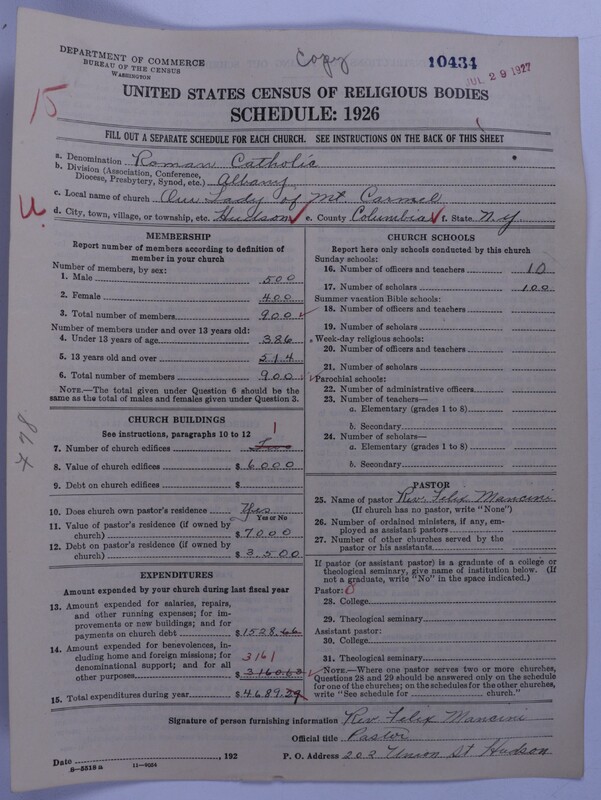 DEPARTMENT OF COMMERCE
BUREAU OF THE CENSUS
WASHINGTON
Copy
10434
JUL 29 1927
15
UNITED STATES CENSUS OF RELIGIOUS BODIES
SCHEDULE: 1926
FILL OUT A SEPARATE SCHEDULE FOR EACH CHURCH. SEE INSTRUCTIONS ON THE BACK OF THIS SHEET
a. Denomination Roman Catholic
b. Division (Association, Conference,
Diocese, Presbytery, Synod, etc.) Albany
c. Local name of church Our Lady of Mt. Carmel
U.
d. City, town, village, or township, etc. Hudson e. County Columbia f. State N.Y
MEMBERSHIP
Report number of members according to definition of
member in your church
Number of members, by sex:
1. Male 500
2. Female 400
3. Total number of members 900
Number of members under and over 13 years old:
4. Under 13 years of age 386
5. 13 years old and over 514
6. Total number of members 900
NOTE.—The total given under Question 6 should be the
same as the total of males and females given under Question 3.
CHURCH BUILDINGS
See instructions, paragraphs 10 to 12
7. Number of church edifices 1
8. Value of church edifices $ 6000
9. Debt on church edifices $
478
10. Does church own pastor's residence Yes
Yes or No
11. Value of pastor's residence (if owned by
church) $ 7000
12. Debt on pastor's residence (if owned by
church) $ 3,500
EXPENDITURES
Amount expended by your church during last fiscal year
13. Amount expended for salaries, repairs,
and other running expenses; for im-
provements or new buildings; and for
payments on church debt $ 1528.66
14. Amount expended for benevolences, in-
cluding home and foreign missions; for
denominational support; and for all
other purposes 3161 $ 3160.63
15. Total expenditures during year $ 4689.29
CHURCH SCHOOLS
Report here only schools conducted by this church
Sunday schools:
16. Number of officers and teachers 10
17. Number of scholars 100
Summer vacation Bible schools:
18. Number of officers and teachers
19. Number of scholars
Week-day religious schools:
20. Number of officers and teachers
21. Number of scholars
Parochial schools:
22. Number of administrative officers
23. Number of teachers—
a. Elementary (grades 1 to 8)
b. Secondary
24. Number of scholars—
a. Elementary (grades 1 to 8)
b. Secondary
PASTOR
25. Name of pastor Rev. Felix Mancini
(If church has no pastor, write "None")
26. Number of ordained ministers, if any, em-
ployed as assistant pastors
27. Number of other churches served by the
pastor or his assistants
If pastor (or assistant pastor) is a graduate of a college or
theological seminary, give name of institution below. (If
not a graduate, write "No" in the space indicated.)
Pastor: 0
28. College
29. Theological seminary
Assistant pastor:
30. College
31. Theological seminary
NOTE.—Where one pastor serves two or more churches,
Questions 28 and 29 should be answered only on the schedule
for one of the churches; on the schedules for the other churches,
write "See schedule for church."
Signature of person furnishing information Rev. Felix Mancini
Official title Pastor
Date , 192 P. O. Address 202 Union St Hudson
8—5518 a 11—9064